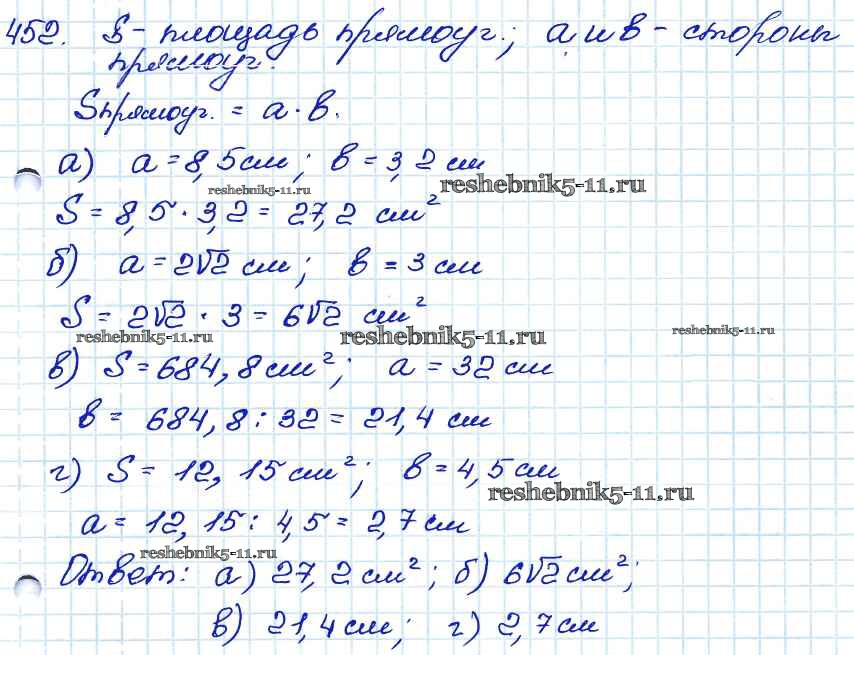 452. S - площадь прямоуг.; а и в - стороны
прямоуг.
Sпрямоуг. = а · в.
а) а = 8,5 см; в = 3,2 см
reshebnik5-11.ru
reshebnik5-11.ru
S = 8,5 · 3,2 = 27,2 см²
б) а = 2√2 см; в = 3 см
S = 2√2 · 3 = 6√2 см²
reshebnik5-11.ru
reshebnik5-11.ru
reshebnik5-11.ru
в) S = 684,8 см²; а = 32 см
в = 684,8 : 32 = 21,4 см
г) S = 12,15 см²; в = 4,5 см
reshebnik5-11.ru
а = 12,15 : 4,5 = 2,7 см
reshebnik5-11.ru
Ответ: а) 27,2 см²; б) 6√2 см²;
в) 21,4 см; г) 2,7 см